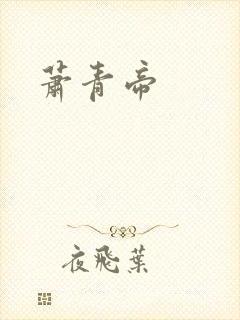 萧青帝
夜飛葉